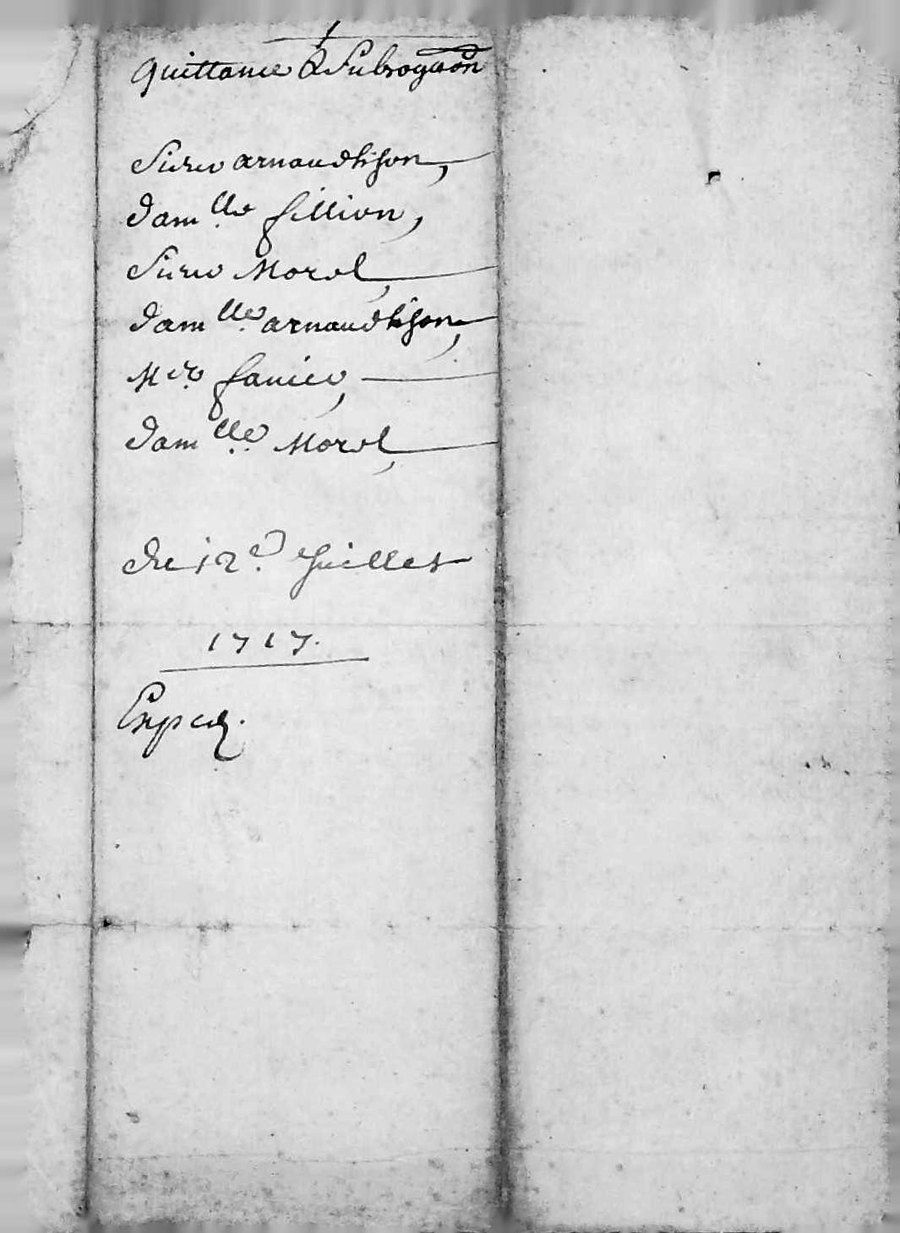 quittance & Subrogaōn
Sieur arnaudhison,
dam lle fillion,
Sieur Morel,
dam lle arnaudhison,
Mre
dam lle Morel,
du 12e Juillet
1717.
Exped.